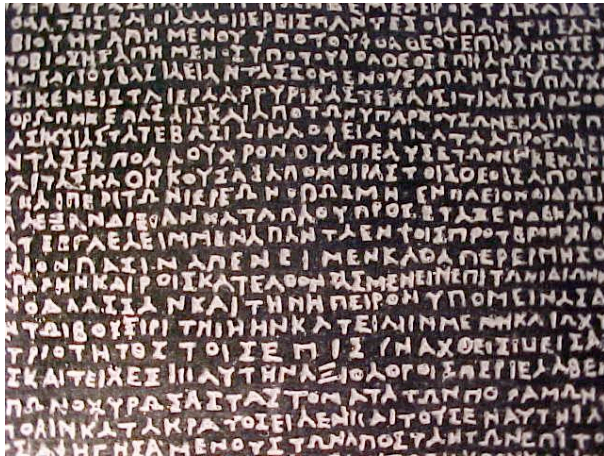 ΑΤΕΙΣΚΑΙΟΙΑΛΛΟΙΙΕΡΕΙΣΠΑΝΤΕΣΟΙΑΠΑΝΤΗΣΑΝ
ΒΙΟΥΗΓΑΠΗΜΕΝΟΥΥΠΟΤΟΥΦΘΑΘΕΟΥΕΠΙΦΑΝΟΥΣΕΥ
ΟΒΙΟΣΗΓΑΠΗΜΕΝΟΣΥΠΟΤΟΥΦΘΑΘΕΟΣΕΠΙΦΑΝΗΣΕΥΧ
ΗΝΕΑΥΤΟΥΒΑΣΙΛΕΙΑΝΤΑΣΣΟΜΕΝΟΥΣΑΠΑΝΤΑΣΥΠΑΡΧ
ΕΙΚΕΝΕΙΣΤΑΙΕΡΑΑΡΓΥΡΙΚΑΣΤΕΚΑΙΣΙΤΙΚΑΣΠΡΟΣΟ
ΘΡΩΠΗΚΕΠΑΣΙΚΑΙΑΠΟΤΩΝΥΠΑΡΧΟΥΣΩΝΕΝΑΙΓΥΠ
ΑΣΚΑΙΤΑΤΕΒΑΣΙΛΙΚΑΟΦΕΙΛΗΜΑΤΑΑΠΡΟΣΩΦΕΙ
ΝΤΑΣΕΚΠΟΛΛΟΥΧΡΟΝΟΥΑΠΕΛΥΣΕΤΩΝΕΝΚΕΚΛΗ
ΑΙΤΑΣΚΑΘΗΚΟΥΣΑΣΑΠΟΜΟΙΡΑΣΤΟΙΣΘΕΟΙΣΑΠΟΤ
ΕΚΑΙΠΕΡΙΤΩΝΙΕΡΕΩΝΟΠΩΣΜΗΘΕΝΠΛΕΙΟΝΔΙΔΩΣ
ΑΛΕΞΑΝΔΡΕΙΑΝΚΑΤΑΠΛΟΥΠΡΟΣΕΤΑΞΕΝΔΕΚΑΙΤ
ΑΤΕΕΓΛΕΛΕΙΜΜΕΝΑΠΑΝΤΑΕΝΤΟΙΣΠΡΟΤΕΡΟΝΧΡΟ
ΑΙΟΝΠΑΣΙΝΑΠΕΝΕΙΜΕΝΚΑΘΑΠΕΡΕΡΜΗΣΟ
ΡΑΧΗΝΚΑΙΡΟΙΣΚΑΤΕΛΘΟΝΤΑΣΜΕΝΕΙΝΕΠΙΤΩΝΙΔΙΩΝ
ΘΑΛΑΣΣΑΝΚΑΙΤΗΝΗΠΕΙΡΟΝΥΠΟΜΕΙΝΑΣΔΑ
ΝΤΩΙΒΟΥΣΙΡΙΤΗΙΗΗΝΚΑΤΕΙΛΗΜΜΕΝΗΚΑΙΩΧ
ΤΡΙΟΤΗΤΟΣΤΟΙΣΕΠΙΣΥΝΑΧΘΕΙΣΙΝΕΙΣΑ
ΣΚΑΙΤΕΙΧΕΣΙΝΑΥΤΗΝΑΞΙΟΛΟΓΟΙΣΠΕΡΙΕΛΑΒΕΝ
ΠΩΝΟΧΥΡΩΣΑΣΤΑΣΤΟΜΑΤΑΤΩΝΠΟΤΑΜΩΝ
ΠΟΛΙΝΚΑΤΑΚΡΑΤΟΣΕΙΛΕΝΚΑΙΤΟΥΣΕΝΑΥΤΗΙΑ
ΣΑΦΗΓΗΣΑΜΕΝΟΥΣΤΩΝΑΠΟΣΤΑΝΤΩΝΕΠΙΤΟ